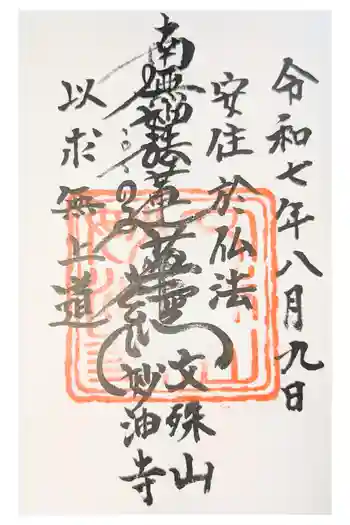 令和七年八月九日
安住於仏法
南無妙法蓮華経
以求無上道
文殊山
妙油寺